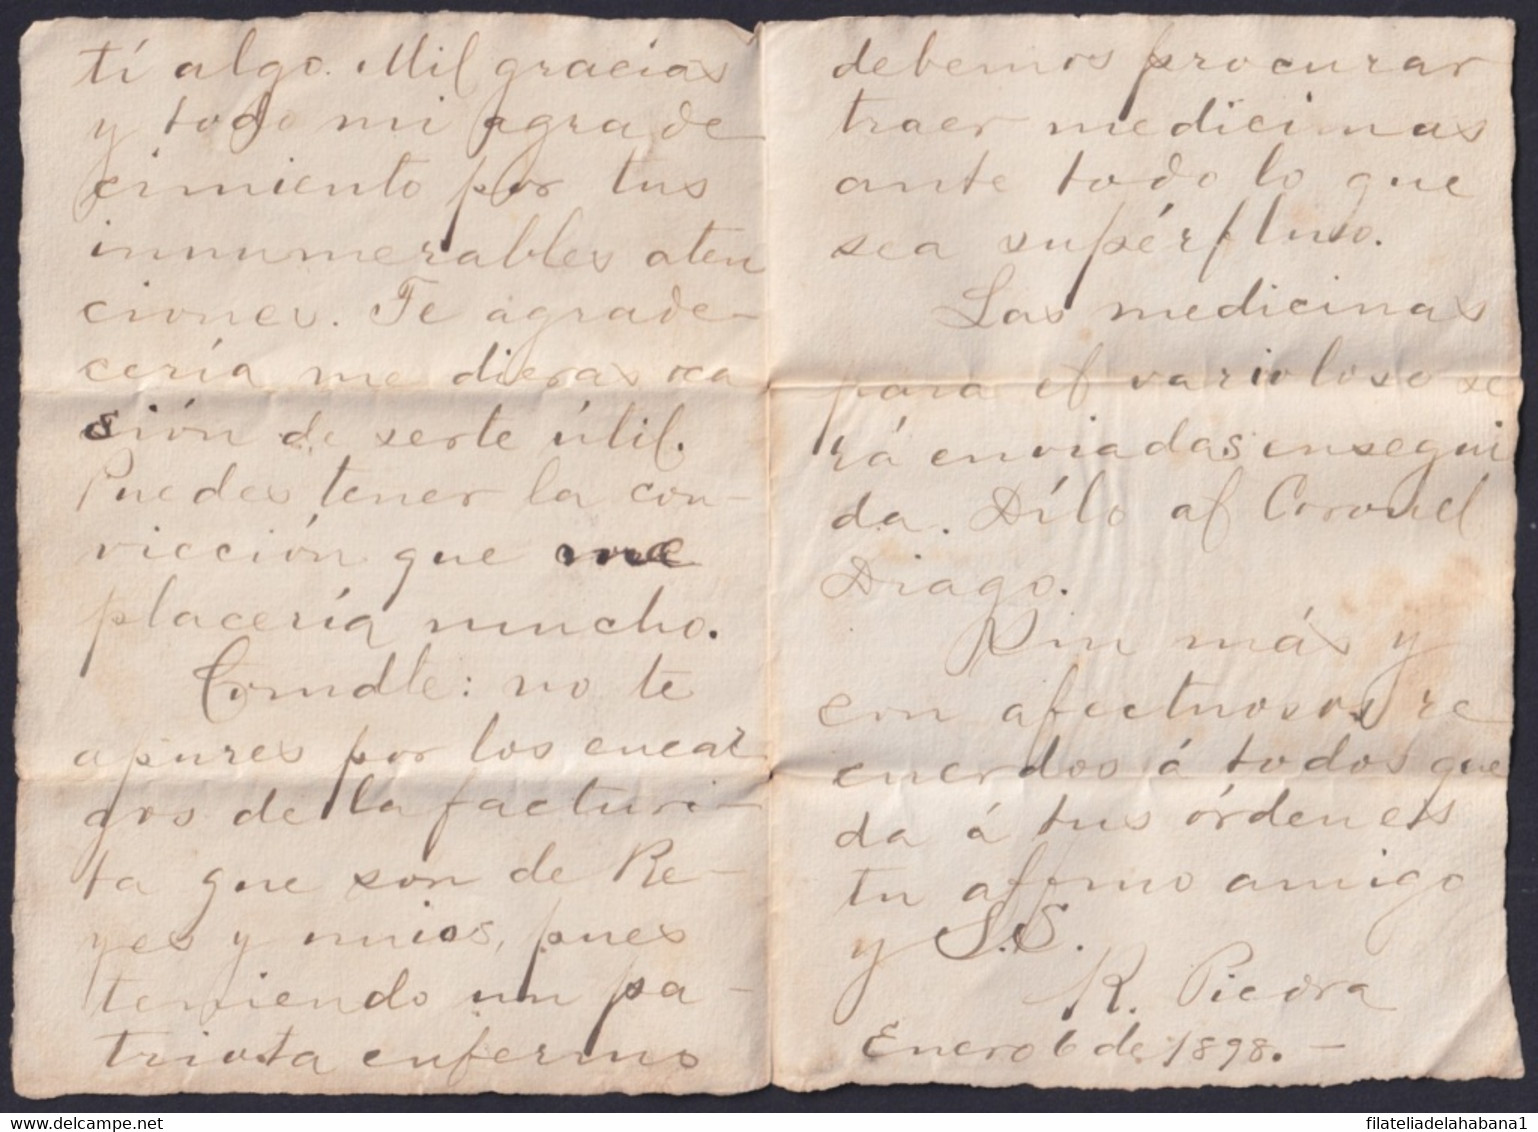 tí algo. Mil gracias
y todo mi agrade
cimiento por tus
innumerables aten
ciones. Te agrade-
cería me dieras oca
sión de serte útil.
Puedes tener la con-
vicción que me
placería muncho.
Comdte: no te
apures por los encar
gos de la facturi-
ta que son de Re-
yes y mios, pues
teniendo un pa-
triota enfermo
debemos procurar
traer medicinas
ante todo lo que
sea supérfluo.
Las medicinas
para el varioloso se
rá enviadas ensegui
da. Dílo al Coronel
Diago.
Sin más y
con afectuosos re
cuerdos á todos que
da á tus órdenes
tu afmo amigo
y S.S.
R. Piedra
Enero 6 de 1898.-
filateliadelahabana1